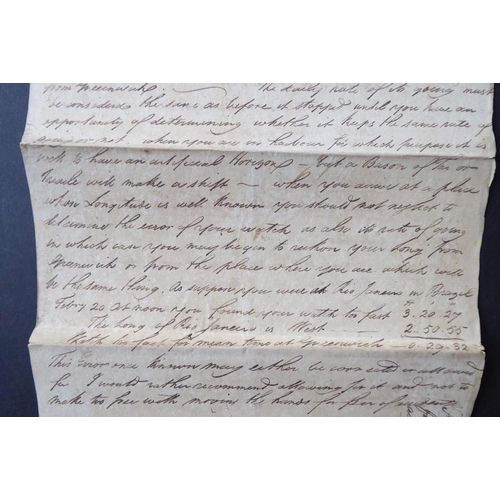 from Greenwich. The daily rate of its going must
be considered the same as before it stopped until you have an
opportunity of determining whether it keeps the same rate of
going or not when you are in harbour for which purpose it is
well to have an artificial Horizon — but a Bason of Tar or
Treacle will make a shift — when you arrive at a place
whose Longitude is well known you should not neglect to
determine the error of your watch as also its rate of going
in which case you may begin to reckon your Long from
Greenwich or from the place where you are which will
be the same thing, as suppose you were at Rio Janeiro in Brazil
Febry 20 at noon you found your watch too fast 3.20.27
The Long of Rio Janeiro is West 2.50.55
Watch too fast for mean time at Greenwich 0.29.32
This Error once known may either be corrected or allowed
for I would rather recommend allowing for it and not to
make too free with moving the hands for fear of